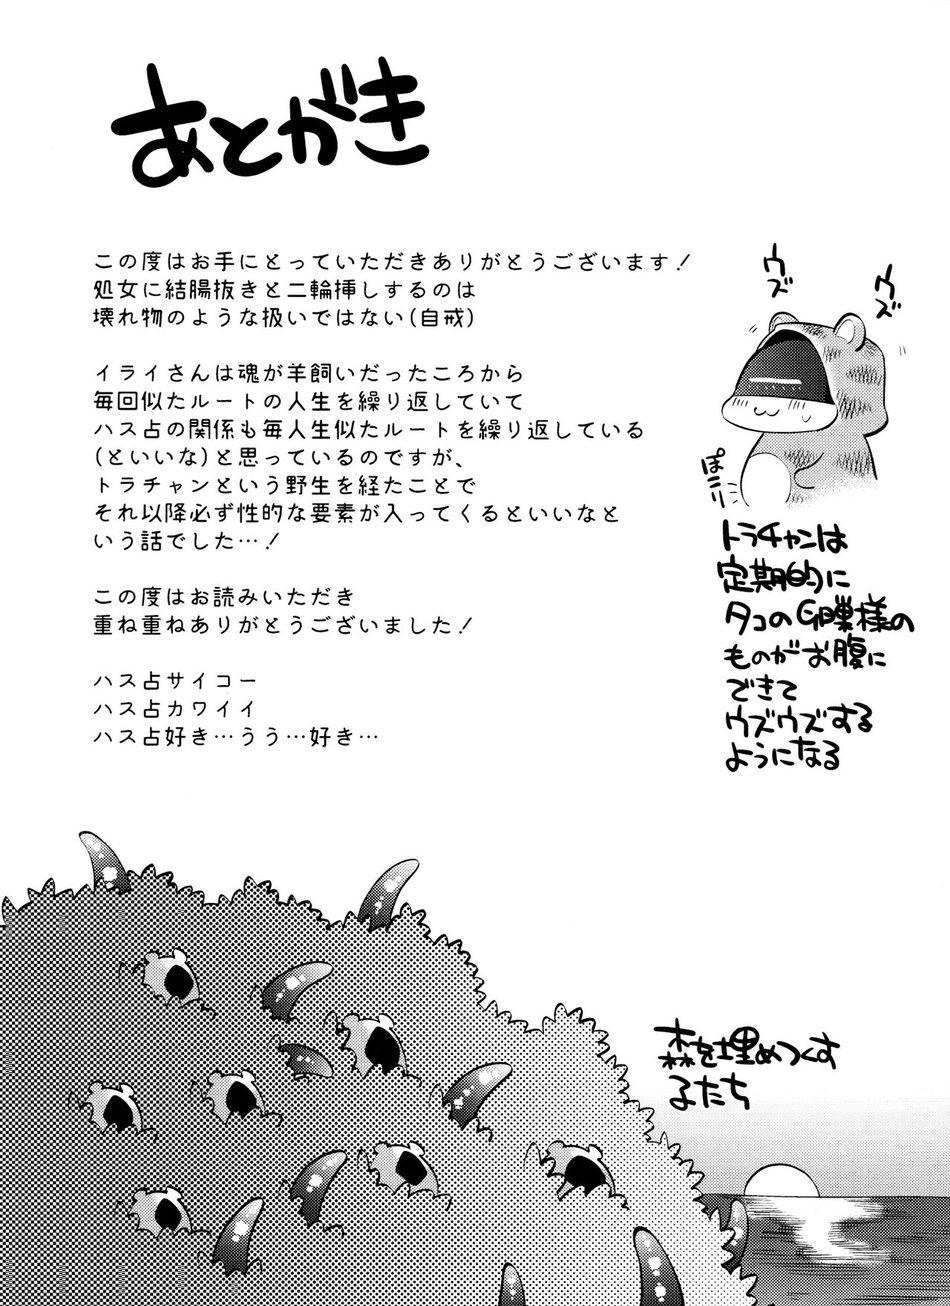 あとがき
この度はお手にとっていただきありがとうございます!
処女に結腸抜きと二輪挿しするのは
壊れ物のような扱いではない(自戒)
イライさんは魂が羊飼いだったころから
毎回似たルートの人生を繰り返していて
ハス占の関係も毎人生似たルートを繰り返している
(といいな)と思っているのですが、
トラチャンという野生を経たことで
それ以降必ず性的な要素が入ってくるといいなと
いう話でした…!
この度はお読みいただき
重ね重ねありがとうございました!
ハス占サイコー
ハス占カワイイ
ハス占好き…うう…好き…
ウズ
ウズ
ぽこり
トラチャンは
定期的に
タコの卵巣様の
ものがお腹に
できて
ウズウズする
ようになる
森を埋めつくす
子たち